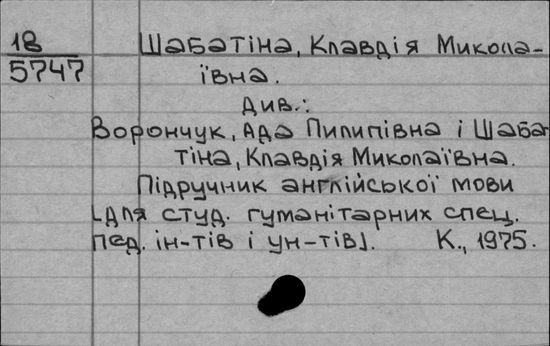 18
5747
Шабатіна, Клавдія Микола-
ївна.
Див.:
Ворончук, Ада Пилипівна і Шаба-
тіна, Клавдія Миколаївна.
Підручник англійської мови
[для студ. гуманітарних спец.
пед. ін-тів і ун-тів]. К., 1975.